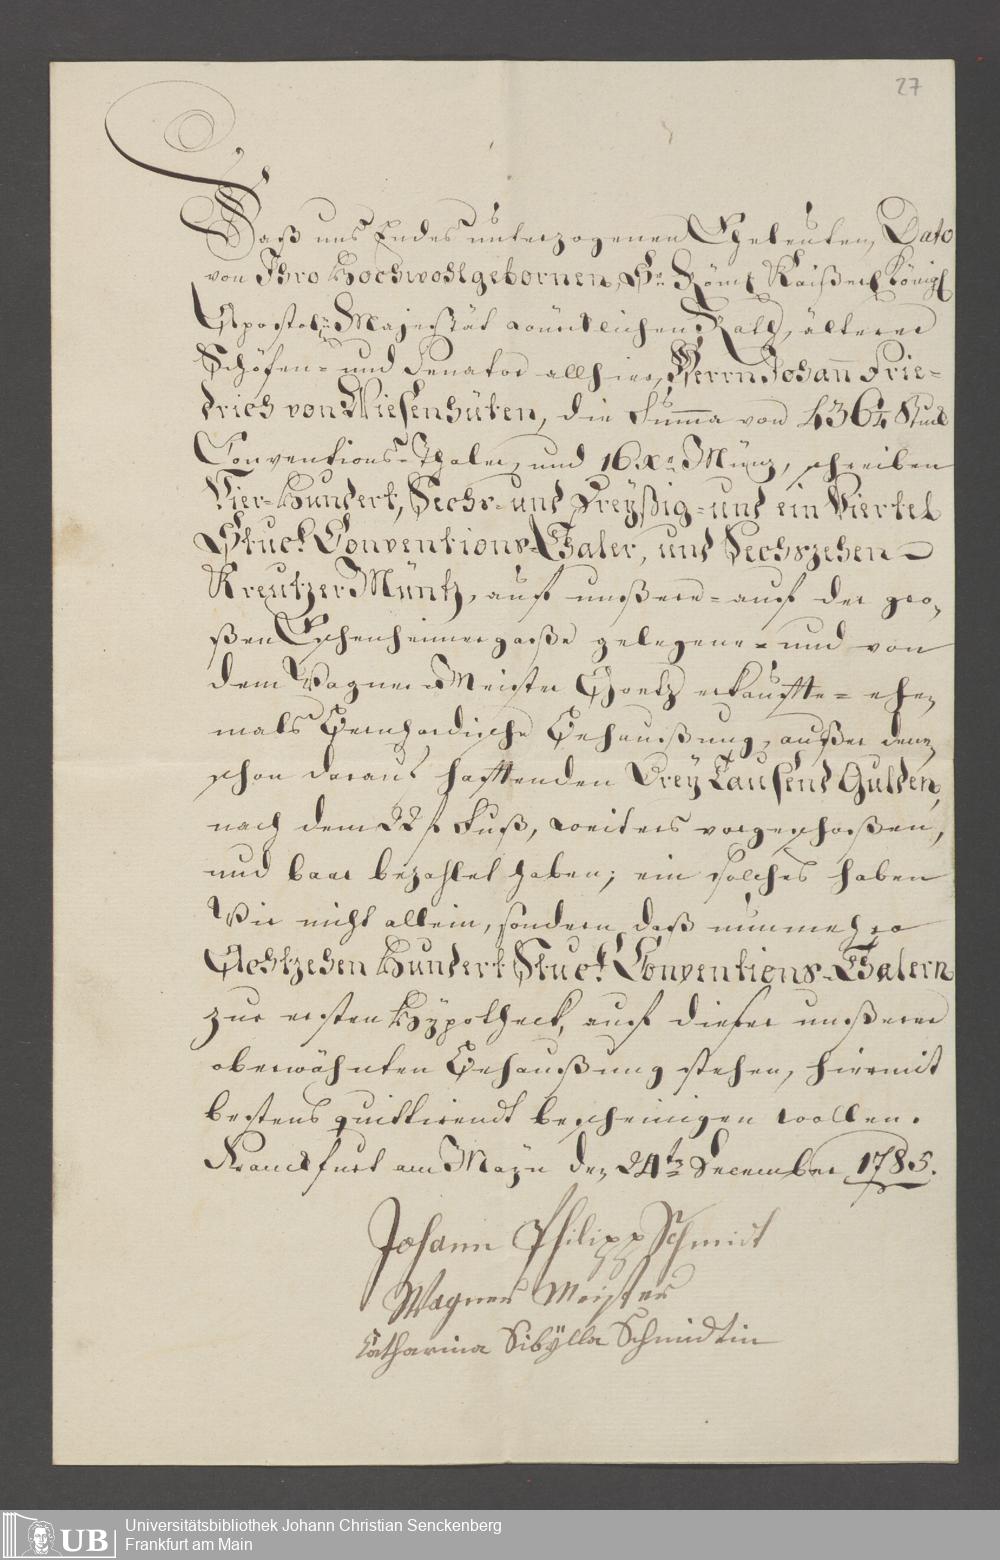 27
Daß uns Endes unterzogenen Eheleuten, Dato
von Ihro Hochwohlgebornen, Hr. Römisch Kaißerl. Königl.
Apostol. Majestät würcklichen Rath, älterer
Schöfen- und Senator allhier, Herrn Johann Frie-
drich von Wiesenhüten, die Summa von 436¼ Stuck
Conventions-Thaler, und 16 Xr. Müntz, schreiben
Vier-Hundert, Sechs- und Dreyßig- und ein Viertel
Stuck Conventions-Thaler, und Sechszehen
Kreutzer Müntz, auf unßere- auf der gro-
ßen Eschenheimergaße gelegene- und von
dem Wagner Meister Goetz erkauffte- ehe-
mals Gernhardische Behaußung, außer denen
schon darauf hafftenden Drey Tausend Gulden,
nach dem 22 f Fuß, weiters vorgeschoßen,
und baar bezahlet haben; ein solches haben
Wir nicht allein, sondern daß nunmehro
Achtzehen Hundert Stuck Conventions-Thalern
zur ersten Hypotheck, auf dieser unßerer
oberwähnten Behaußung stehen, hiermit
bestens quittirendt bescheinigen wollen.
Franckfurt am Mayn den 24ten December 1785.
Johann Philipp Schmidt
Wagner Meister
Catharina Sibÿlla Schmidtin
UB
Universitätsbibliothek Johann Christian Senckenberg
Frankfurt am Main